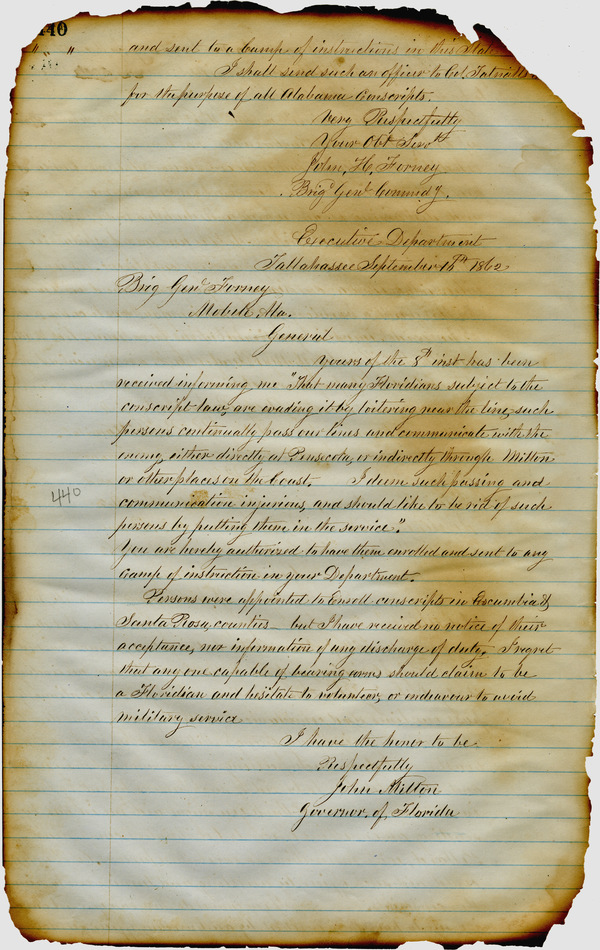 440
" "
and sent to a Camp of instructions in this State
I shall send such an officer to Col. Tatnalls
for the purpose of all Alabama Conscripts.
Very Respectfully
Your Obt Servt
John, H, Forney
Brigd Genl Commdg.
Executive Department
Tallahassee September 15th 1862
Brig Genl Forney
Mobile, Ala.
General
Yours of the 8th inst has been
received informing me "That many Floridians subject to the
conscript law, are evading it by loitering near the line, such
persons continually pass our lines and communicate with the
enemy either directly at Pensacola, or indirectly through Milton
or other places on the Coast. I deem such passing and
communication injurious, and should like to be rid of such
persons by putting them in the service".
You are hereby authorized to have them enrolled and sent to any
camp of instruction in your Department.
Persons were appointed to Enroll conscripts in Escambia &
Santa Rosa, counties but I have received no notice of their
acceptance, nor information of any discharge of duty. I regret
that any one capable of bearing arms should claim to be
a Floridian and hesitate to volunteer, or endeavour to avoid
military service
I have the honor to be
Respectfully
John Milton
Governor of Florida
440